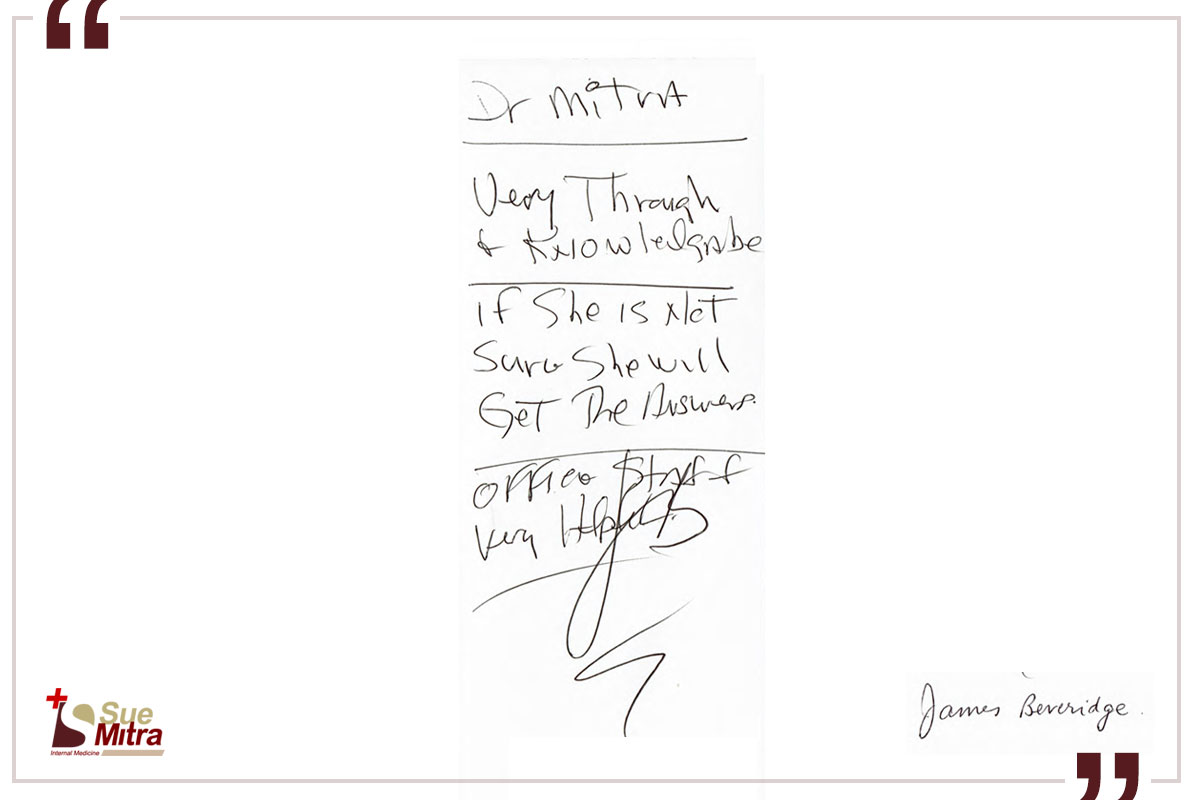 Dr MitrA
Very Through
& Knowledgabe
if She is Not
Sure She will
Get The Answers.
office Staff
very Helpful
Sue
Mitra
Internal Medicine
James Beveridge.